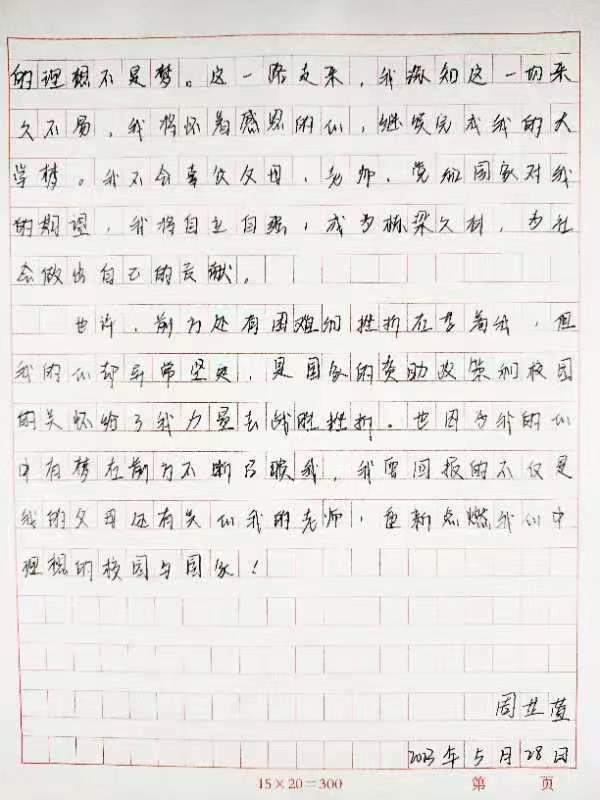 的理想不是梦。这一路走来，我深知这一切来
之不易，我将怀着感恩的心，继续完成我的大
学梦。我不会辜负父母，老师，党和国家对我
的期望，我将自立自强，成为栋梁之材，为社
会做出自己的贡献。
也许，前方还有困难和挫折在等着我，但
我的心却异常坚定，是国家的资助政策和校园
的关怀给了我力量去战胜挫折。也因为我的心
中有梦在前方不断召唤我，我要回报的不仅是
我的父母还有关心我的老师，重新点燃我心中
理想的校园与国家！
周芷萱
2023年5月28日
15×20=300
第 页